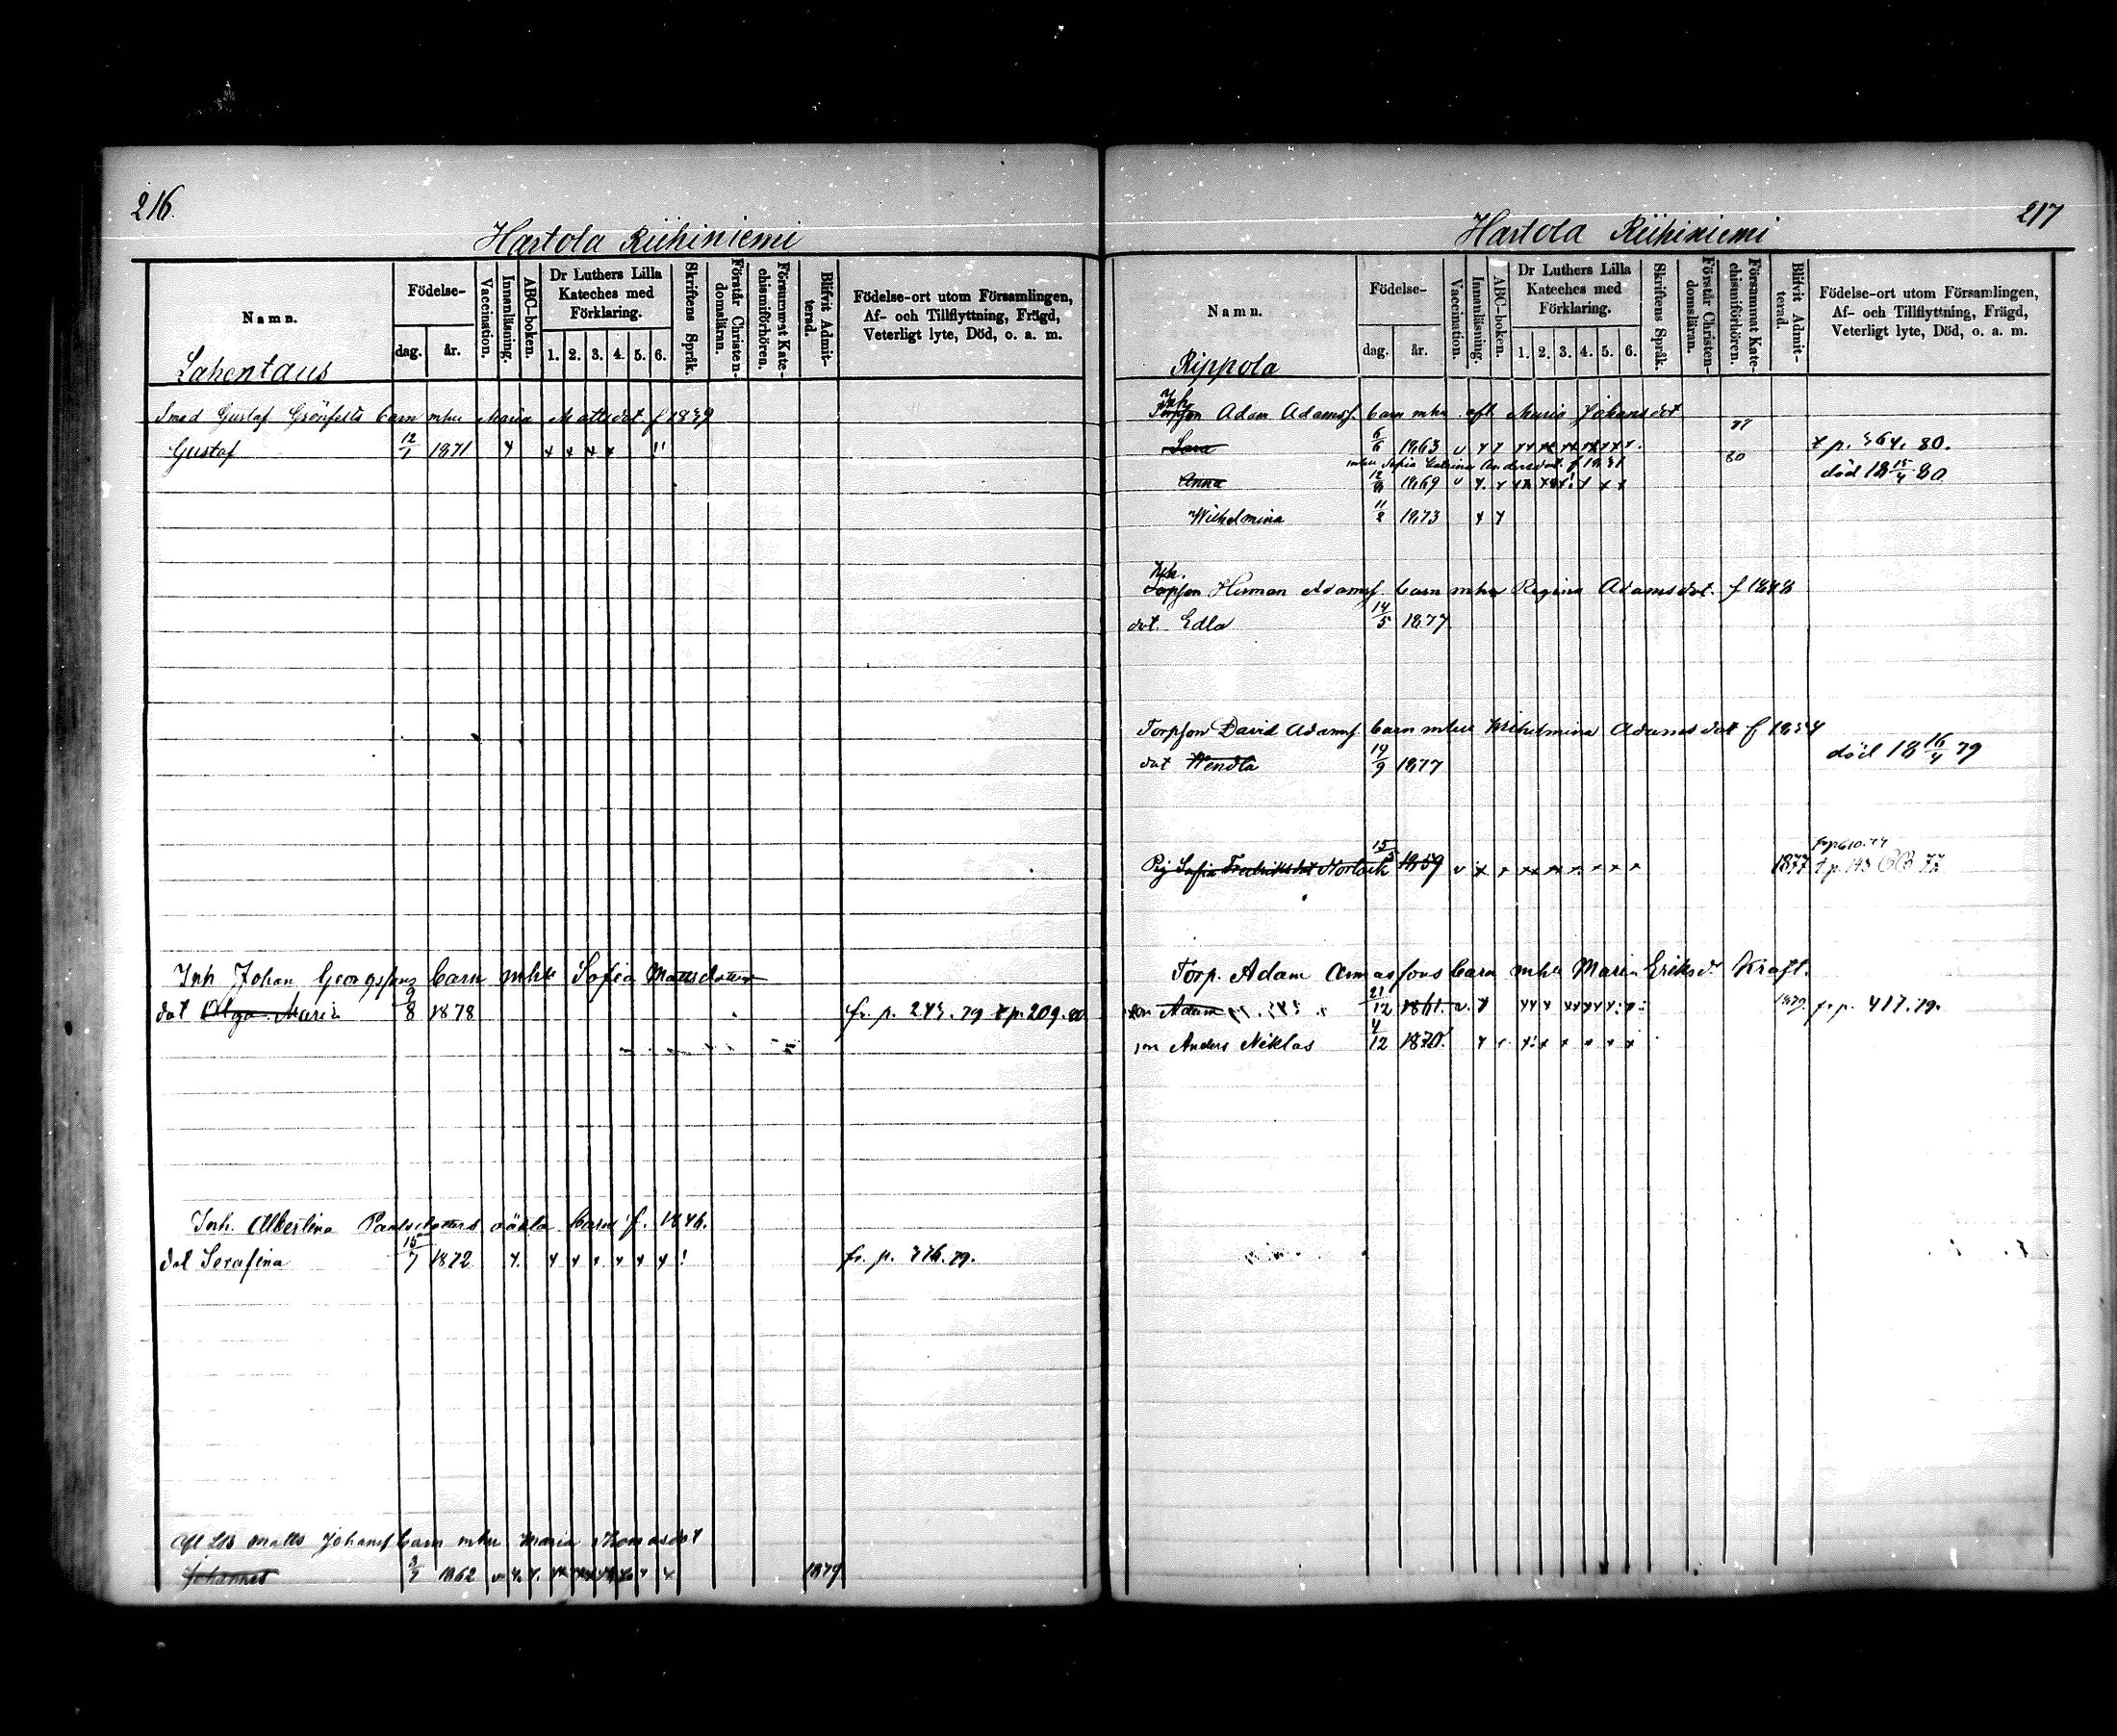 216.
Hartola Riihiniemi
Namn.
Födelse-
dag.
år.
Vaccination.
Innanläsning.
ABC-boken.
Dr Luthers Lilla Kateches med Förklaring.
1. 2. 3. 4. 5. 6.
Skriftens Språk.
Förstår Christendomsläran.
Försummat Katechismiförhören.
Blifvit Admitterad.
Födelse-ort utom Församlingen,
Af- och Tillflyttning, Frägd,
Veterligt lyte, Död, o. a. m.
Lahentaus
Smed Gustaf Grönfelts barn mhu Maria Mattsdot. f 1839
Gustaf 12/1 1871
Inh Johan Georgssons barn mhu Sofia Mattsdotter
dot Olga Maria 9/8 1878 fr. p. 243. 79 t p. 209. 80
Inh. Albertina Paulsdotters oäkta barn f. 1846.
dot Serafina 15/7 1872 fr. p. 376. 79.
Matts Johansf barn mhu Maria Thomasdot
Johannes 3/7 1862 1879
217
Hartola Riihiniemi
Namn.
Födelse-
dag.
år.
Vaccination.
Innanläsning.
ABC-boken.
Dr Luthers Lilla
Kateches med
Förklaring.
1. 2. 3. 4. 5. 6.
Skriftens Språk.
Förstår Christendomsläran.
Försummat Katechismiförhören.
Blifvit Admitterad.
Födelse-ort utom Församlingen,
Af- och Tillflyttning, Frägd,
Veterligt lyte, Död, o. a. m.
Rippola
Inh.
Torpson Adam Adamsf. barn mhu afl Maria Johansdot
77
Sara 6/6 1863 t p. 364. 80.
mhu Sofia Catrina Andersdot. f 1831
80
Anna 1869 död 18 15/4 80
Wilhelmina 11/2 1873
Inh.
Torpson Herman Adamsf. barn mhu Regina Adamsdot. f 1848
dot. Edla 14/5 1877
Torpson David Adamsf. barn mhu Wilhelmina Adamsdot f 1854
dot Wendla 14/9 1877 död 18 16/4 79
Pig Sofia Fredriksdot 15/5 1859 1877 fr p 610. 77
t p. 143 77
Torp. Adam barn mhu Maria Eriksd. Kraft.
son Adam 21/12 1861. 1879. fr p. 417. 79.
son Anders Niklas 4/12 1870.